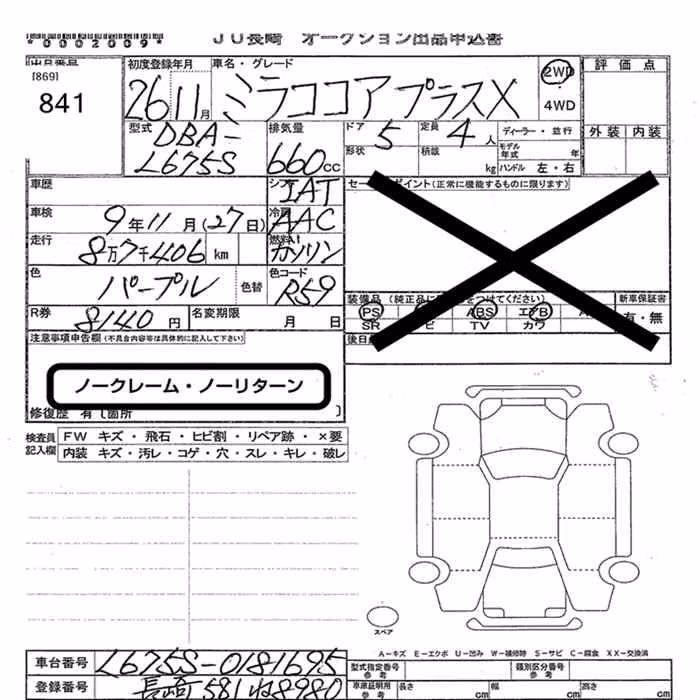 *0002009*
JU長崎 オークション出品申込書
出品番号
[869]
841
初度登録年月 車名・グレード
26 11月 ミラココア プラスX
2WD
4WD
評価点
外装 内装
型式
DBA-
L675S
排気量
660cc
ドア 5 定員 4人
ディーラー・並行
形状 積載 kg
モデル年式 年
ハンドル 左・右
車歴
シフト IAT
車検 9年11月(27日)
冷房 AAC
走行 8万7千406 km
燃料 ガソリン
色 パープル 色替
色コード R59
R券 8140円 名変期限 月 日
(正常に機能するものに限ります)
装備品 (純正品に
をつけてください)
新車保証書
有・無
PS ABS エアB
SR TV カワ
注意事項申告欄(不具合内容等は具体的に記入して下さい)
ノークレーム・ノーリターン
修復歴 有〔箇所 〕
検査員記入欄
FW キズ・飛石・ヒビ割・リペア跡・×要
内装 キズ・汚レ・コゲ・穴・スレ・キレ・破レ
スペア
A-キズ E-エクボ U-凹み W-補修跡 S-サビ C-腐食 XX-交換済
車台番号 L675S-0181695
登録番号 長崎581ね8980
型式指定番号 参考
類別区分番号 参考
車庫証明用 参考 長さ cm 幅 cm 高さ cm